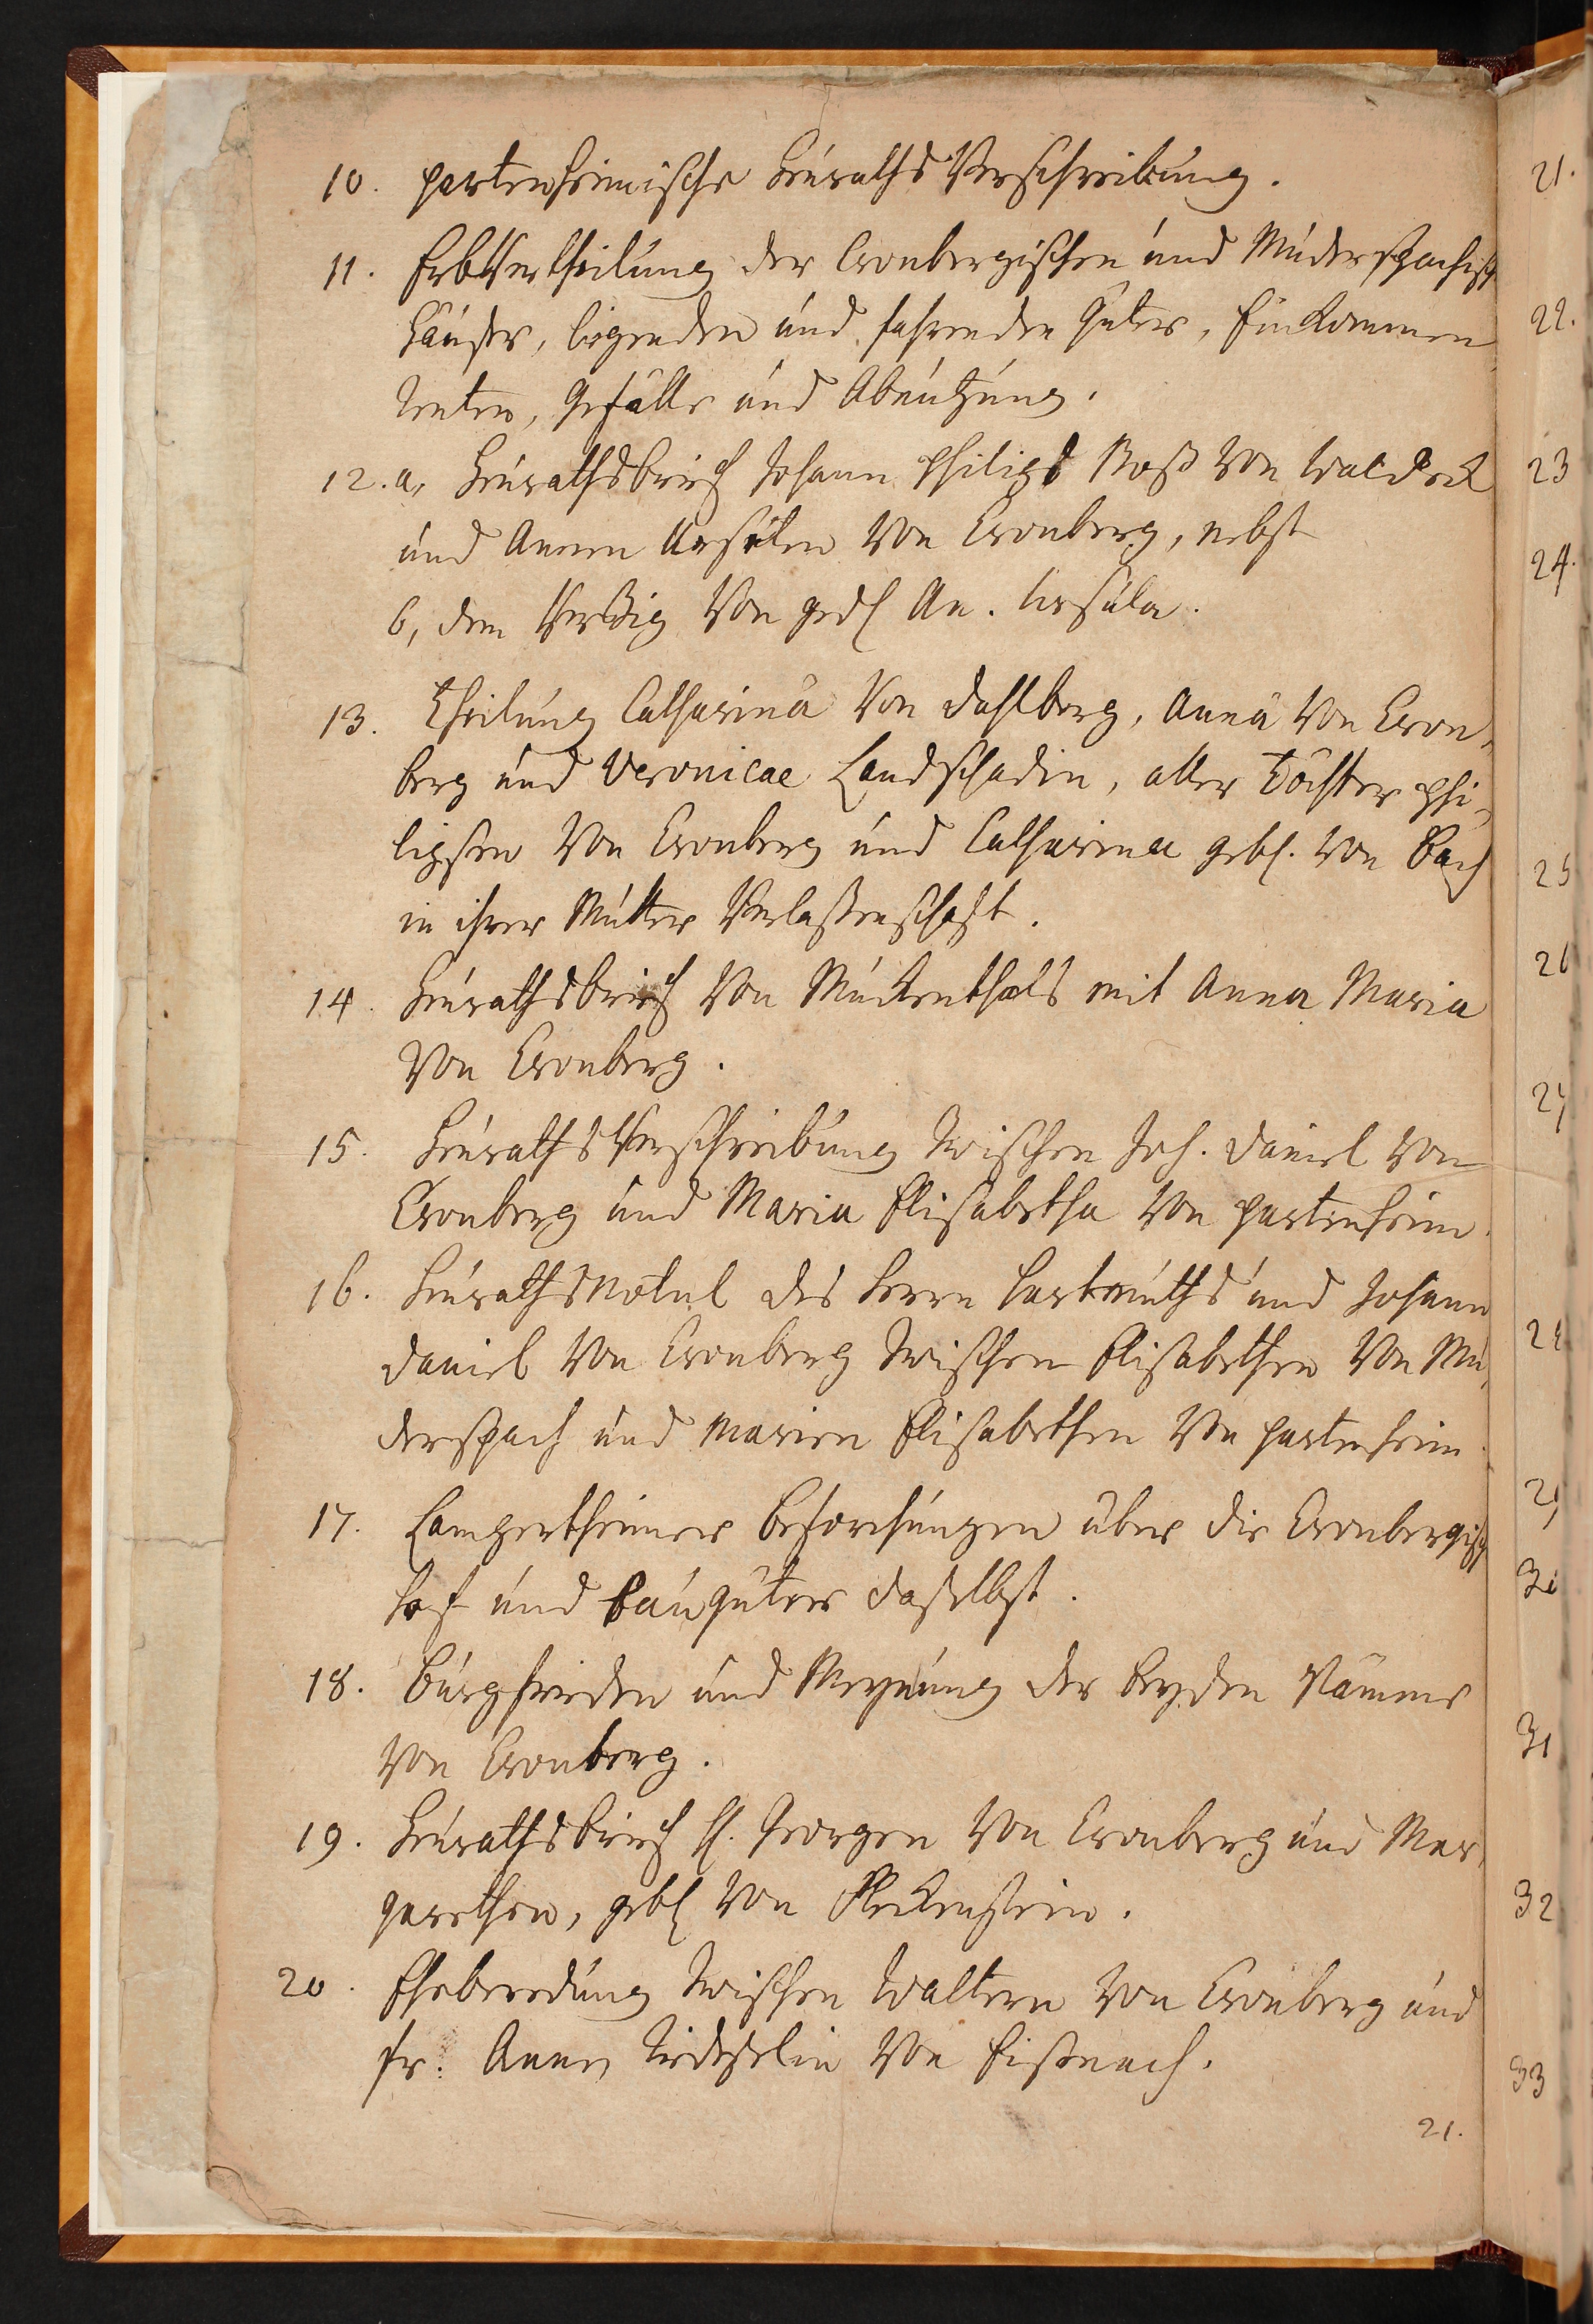 10. partenheimische Heuraths Verschreibung.
11. Erbvertheilung der Cronbergischen und Mudersspachisch
Häußer, liegenden und fahrenden Güter, Einkommen
Renten, Gefälle und Abnutzung.
12. a, Heurathsbrief Johann Philips Boß von Waldeck
und Annen Ursulen von Cronberg, nebst
b, dem Verzig von gedl An. Ursula.
13. Theilung Catharinä von Dahlberg, Annä von Cron-
berg und Veronicae Landschadin, aller Töchter Phi-
lipsen von Cronberg und Catharinae gebl. von Bach
in ihrer Mutter Verlaßenschaft.
14. Heurathsbrief von Muckenthals mit Anna Maria
von Cronberg.
15. Heuraths Verschreibung zwischen Joh. Daniel von
Cronberg und Maria Elisabetha von Partenheim.
16. Heuraths Notul des Herrn Hartmuths und Johann
Daniel von Cronberg zwischen Elisabethen von Mu-
derspach und Marien Elisabethen von Partenheim.
17. Lampertheimer Beforchungen über die Cronbergisch
Hof und Baugüter daselbst.
18. Burgfrieden und Meynung der beyden Stämme
von Cronberg.
19. Heurathsbrief H. Georgen von Cronberg und Mar-
garethen, gebl von Fleckenstein.
20. Eheberedung zwischen Waltern von Cronberg und
Fr. Annen Riedeselin von Eisenach.
21.
21.
22.
23
24.
25
26
27
31
32
33